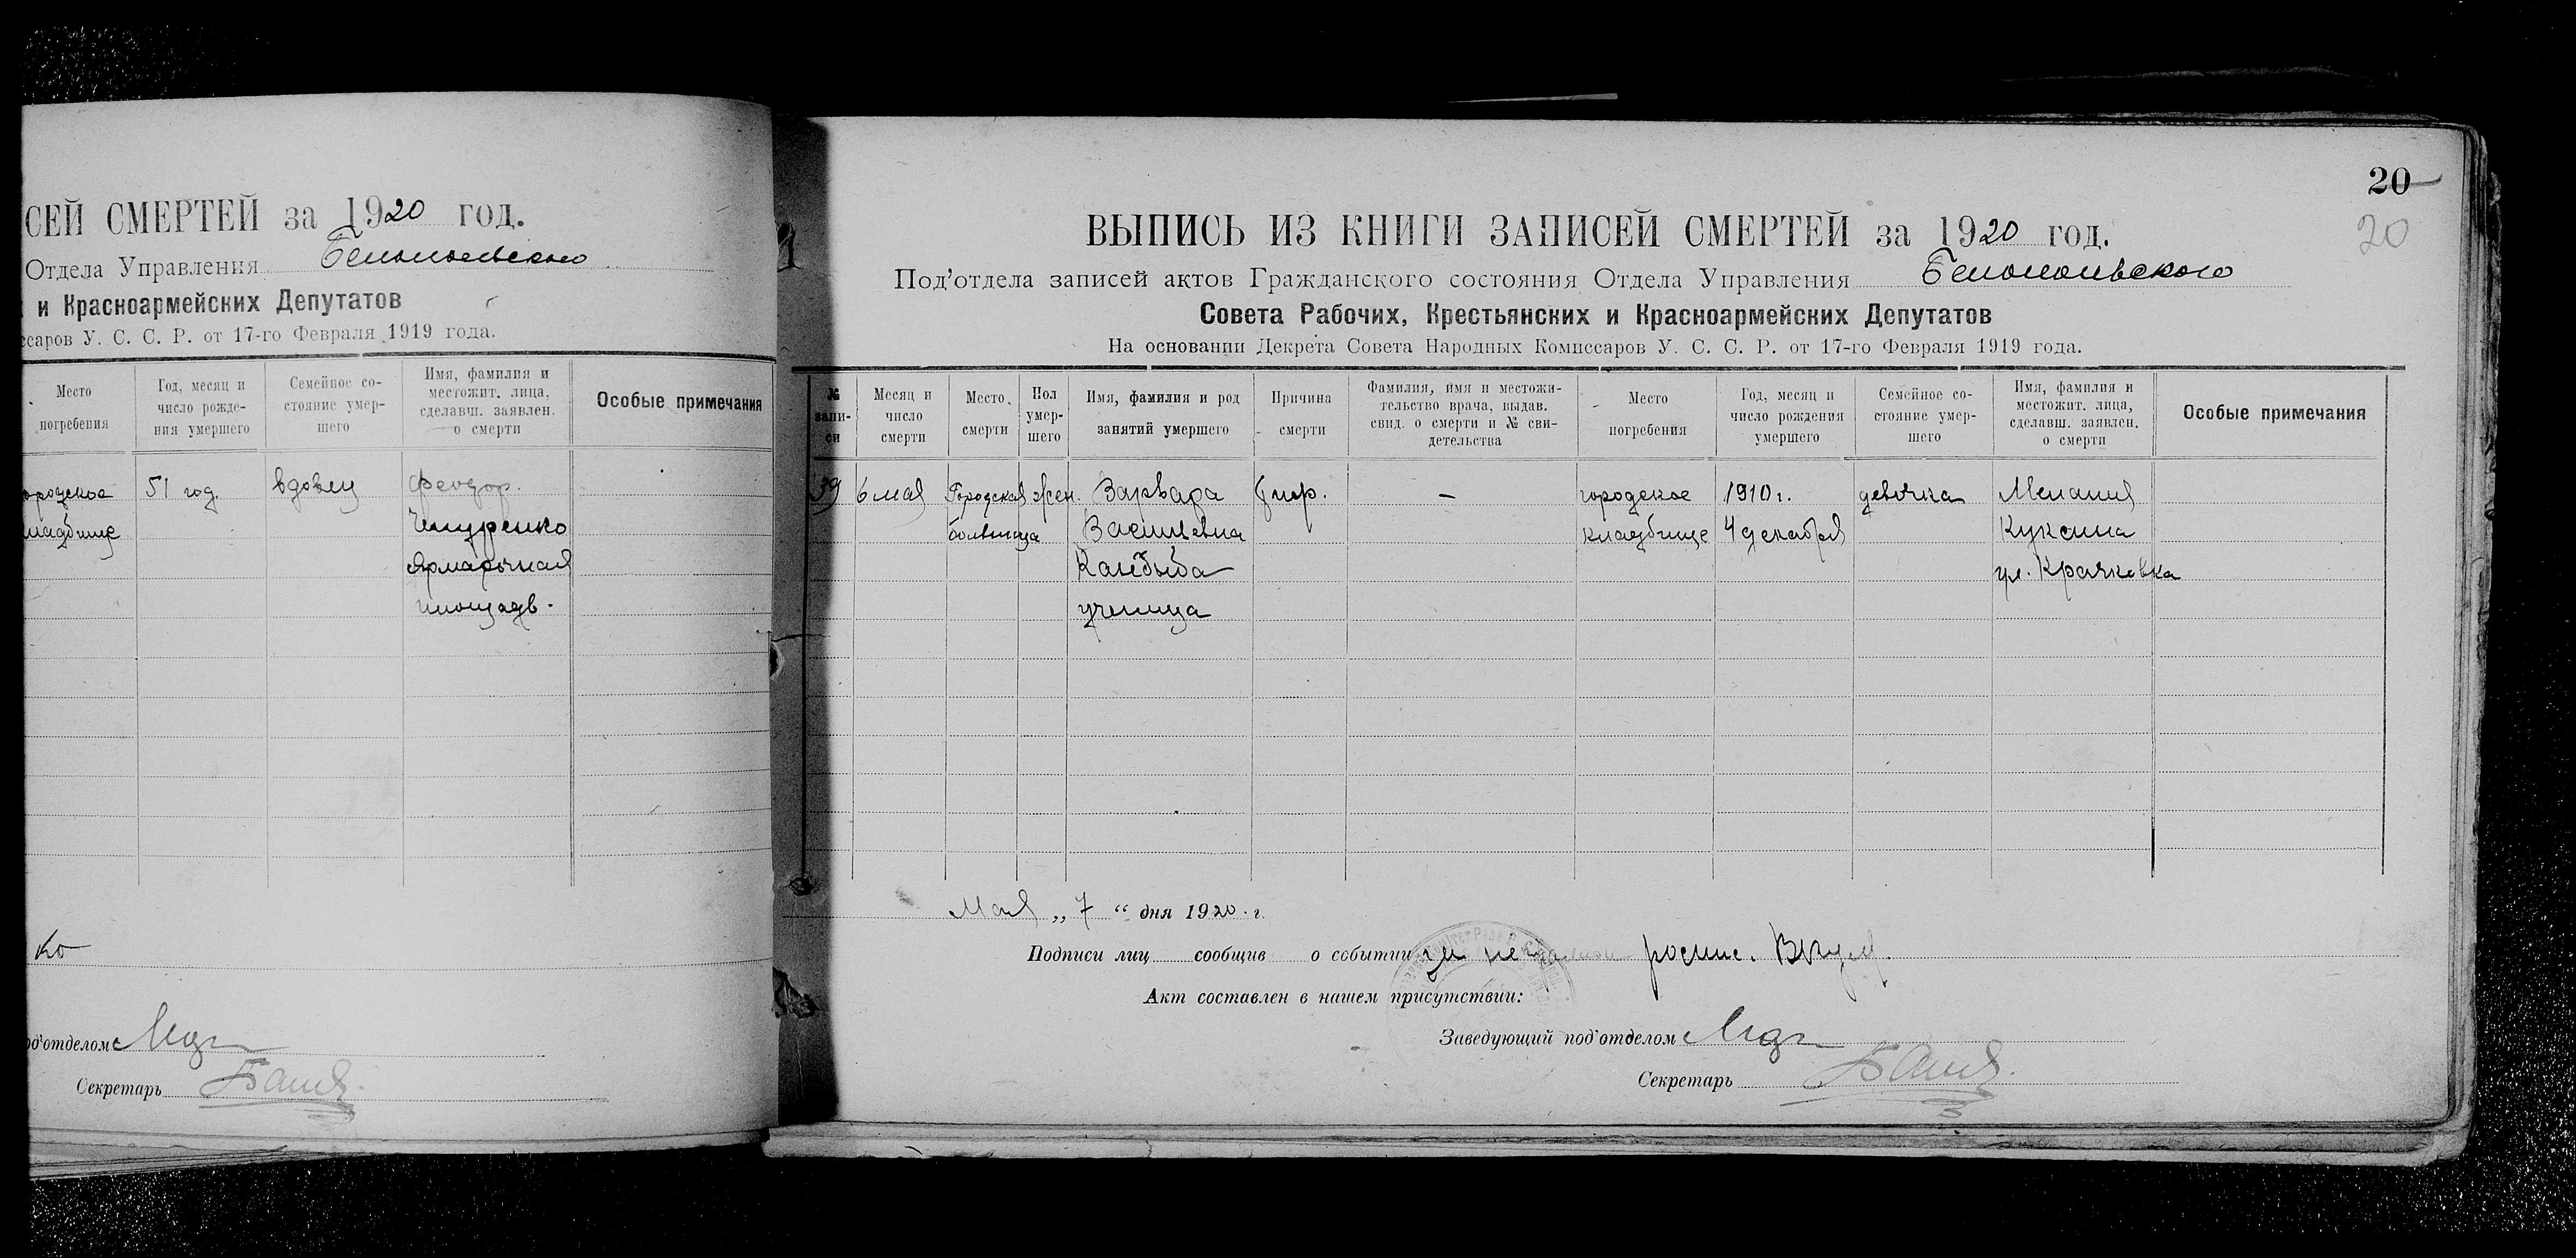 СЕЙ СМЕРТЕЙ за 1920 год.
Отдела Управления Белопольского
и Красноармейских Депутатов
ссаров У. С. С. Р. от 17-го Февраля 1919 года.
Место погребения
Год, месяц и число рожде-ния умершего
Семейное со-стояние умер-шего
Имя, фамилия и местожит. лица, сделавш. заявлен. о смерти
Особые примечания
ородское 51 год. вдовец Феодор
кладбище
Ярмарочная
площадь.
ко
од'отделом
Секретарь
20
20
ВЫПИСЬ ИЗ КНИГИ ЗАПИСЕЙ СМЕРТЕЙ за 1920 год.
Под'отдела записей актов Гражданского состояния Отдела Управления Белопольского
Совета Рабочих, Крестьянских и Красноармейских Депутатов
На основании Декрета Совета Народных Комиссаров У. С. С. Р. от 17-го Февраля 1919 года.
№ запи-си
Месяц и число смерти
Место смерти
Пол умер-шего
Имя, фамилия и род занятий умершего
Причина смерти
Фамилия, имя и местожи-тельство врача, выдав. свид. о смерти и № сви-детельства
Место погребения
Год, месяц и число рождения умершего
Семейное со-стояние умер-шего
Имя, фамилия и местожит. лица, сделавш. заявлен. о смерти
Особые примечания
39 6 мая Городская жен. Варвара — городское 1910 г. девочка Мелания
больница Васильевна кладбище 4 декабря Куксина
Кандыба ул. Крячковка
ученица
Мая „ 7 “ дня 1920 г.
Подписи лиц сообщив о событии
Акт составлен в нашем присутствии:
Заведующий под'отделом
Секретарь